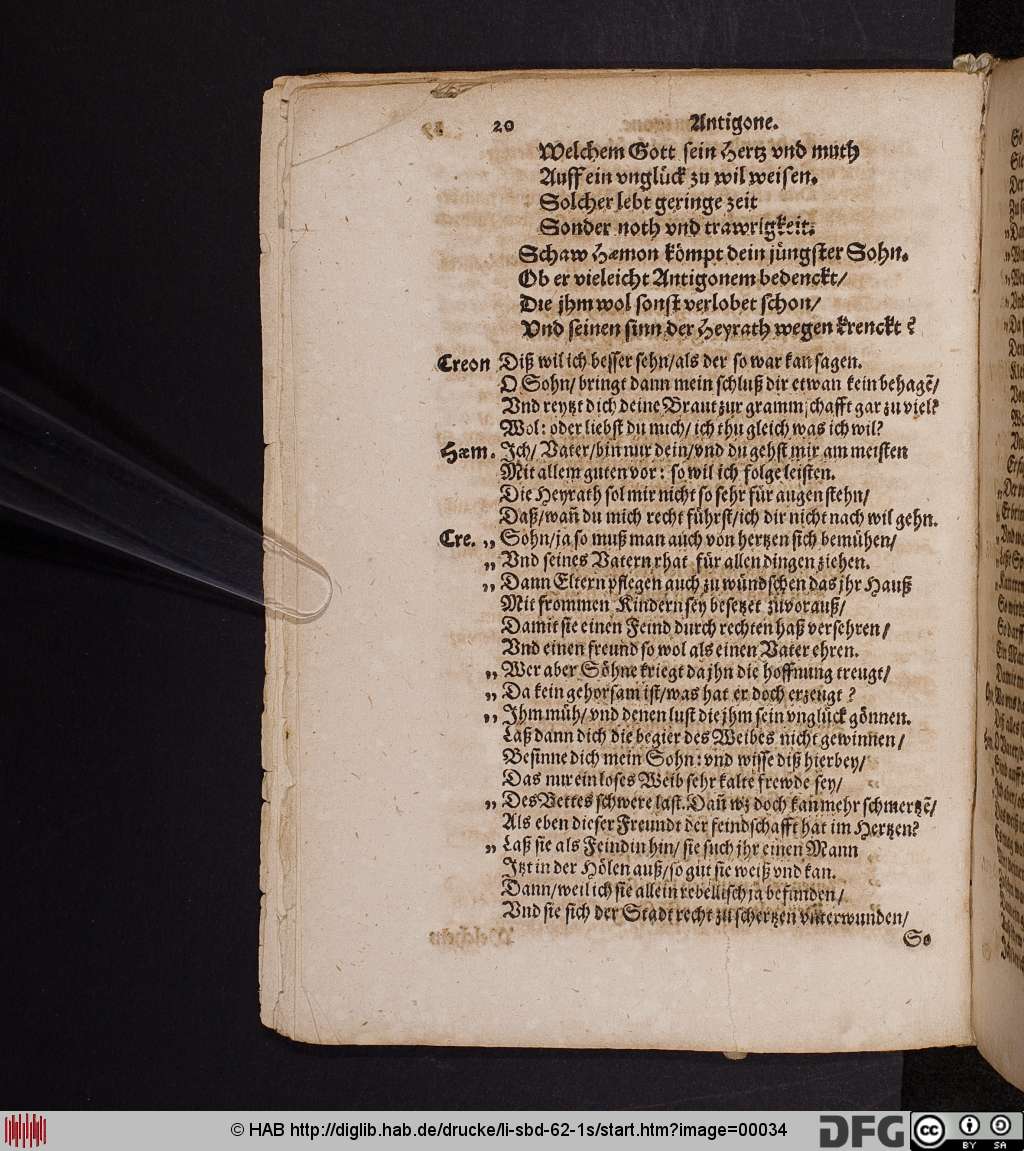 20 Antigone.
Welchem Gott sein Hertz vnd muth
Auff ein vnglück zu wil weisen.
Solcher lebt geringe zeit
Sonder noth vnd trawrigkeit.
Schaw Hæmon kömpt dein jüngster Sohn.
Ob er vieleicht Antigonem bedenckt/
Die jhm wol sonst verlobet schon/
Vnd seinen sinn der Heyrath wegen krenckt?
Creon Diß wil ich besser sehn/als der so war kan sagen.
O Sohn/ bringt dann mein schluß dir etwan kein behagẽ/
Vnd reytzt dich deine Braut zur grammschafft gar zu viel?
Wol: oder liebst du mich/ ich thu gleich was ich wil?
Hæm. Ich/ Vater/bin nur dein/vnd du gehst mir am meisten
Mit allem guten vor: so wil ich folge leisten.
Die Heyrath sol mir nicht so sehr für augen stehn/
Daß/wañ du mich recht führst/ich dir nicht nach wil gehn.
Cre. „ Sohn/ja so muß man auch von hertzen sich bemühen/
„ Vnd seines Vatern rhat für allen dingen ziehen.
„ Dann Eltern pflegen auch zu wündschen das jhr Hauß
Mit frommen Kindern sey besetzet zuvorauß/
Damit sie einen Feind durch rechten haß versehren/
Vnd einen freund so wol als einen Vater ehren.
„ Wer aber Söhne kriegt da jhn die hoffnung treugt/
„ Da kein gehorsam ist/was hat er doch erzeugt?
„ Ihm müh/ vnd denen lust die jhm sein vnglück gönnen.
Laß dann dich die begier des Weibes nicht gewinnen/
Besinne dich mein Sohn: vnd wisse diß hierbey/
Das nur ein loses Weib sehr kalte frewde sey/
„ Des Bettes schwere last. Dañ wz doch kan mehr schmertzẽ/
Als eben dieser Freundt der feindschafft hat im Hertzen?
„ Laß sie als Feindin hin/ sie such jhr einen Mann
Itzt in der Hölen auß/so gut sie weiß vnd kan.
Dann/weil ich sie allein rebellisch ja befunden/
Vnd sie sich der Stadt recht zu schertzen vnterwunden/
So
© HAB http://diglib.hab.de/drucke/li-sbd-62-1s/start.htm?image=00034
DFG
cc BY SA